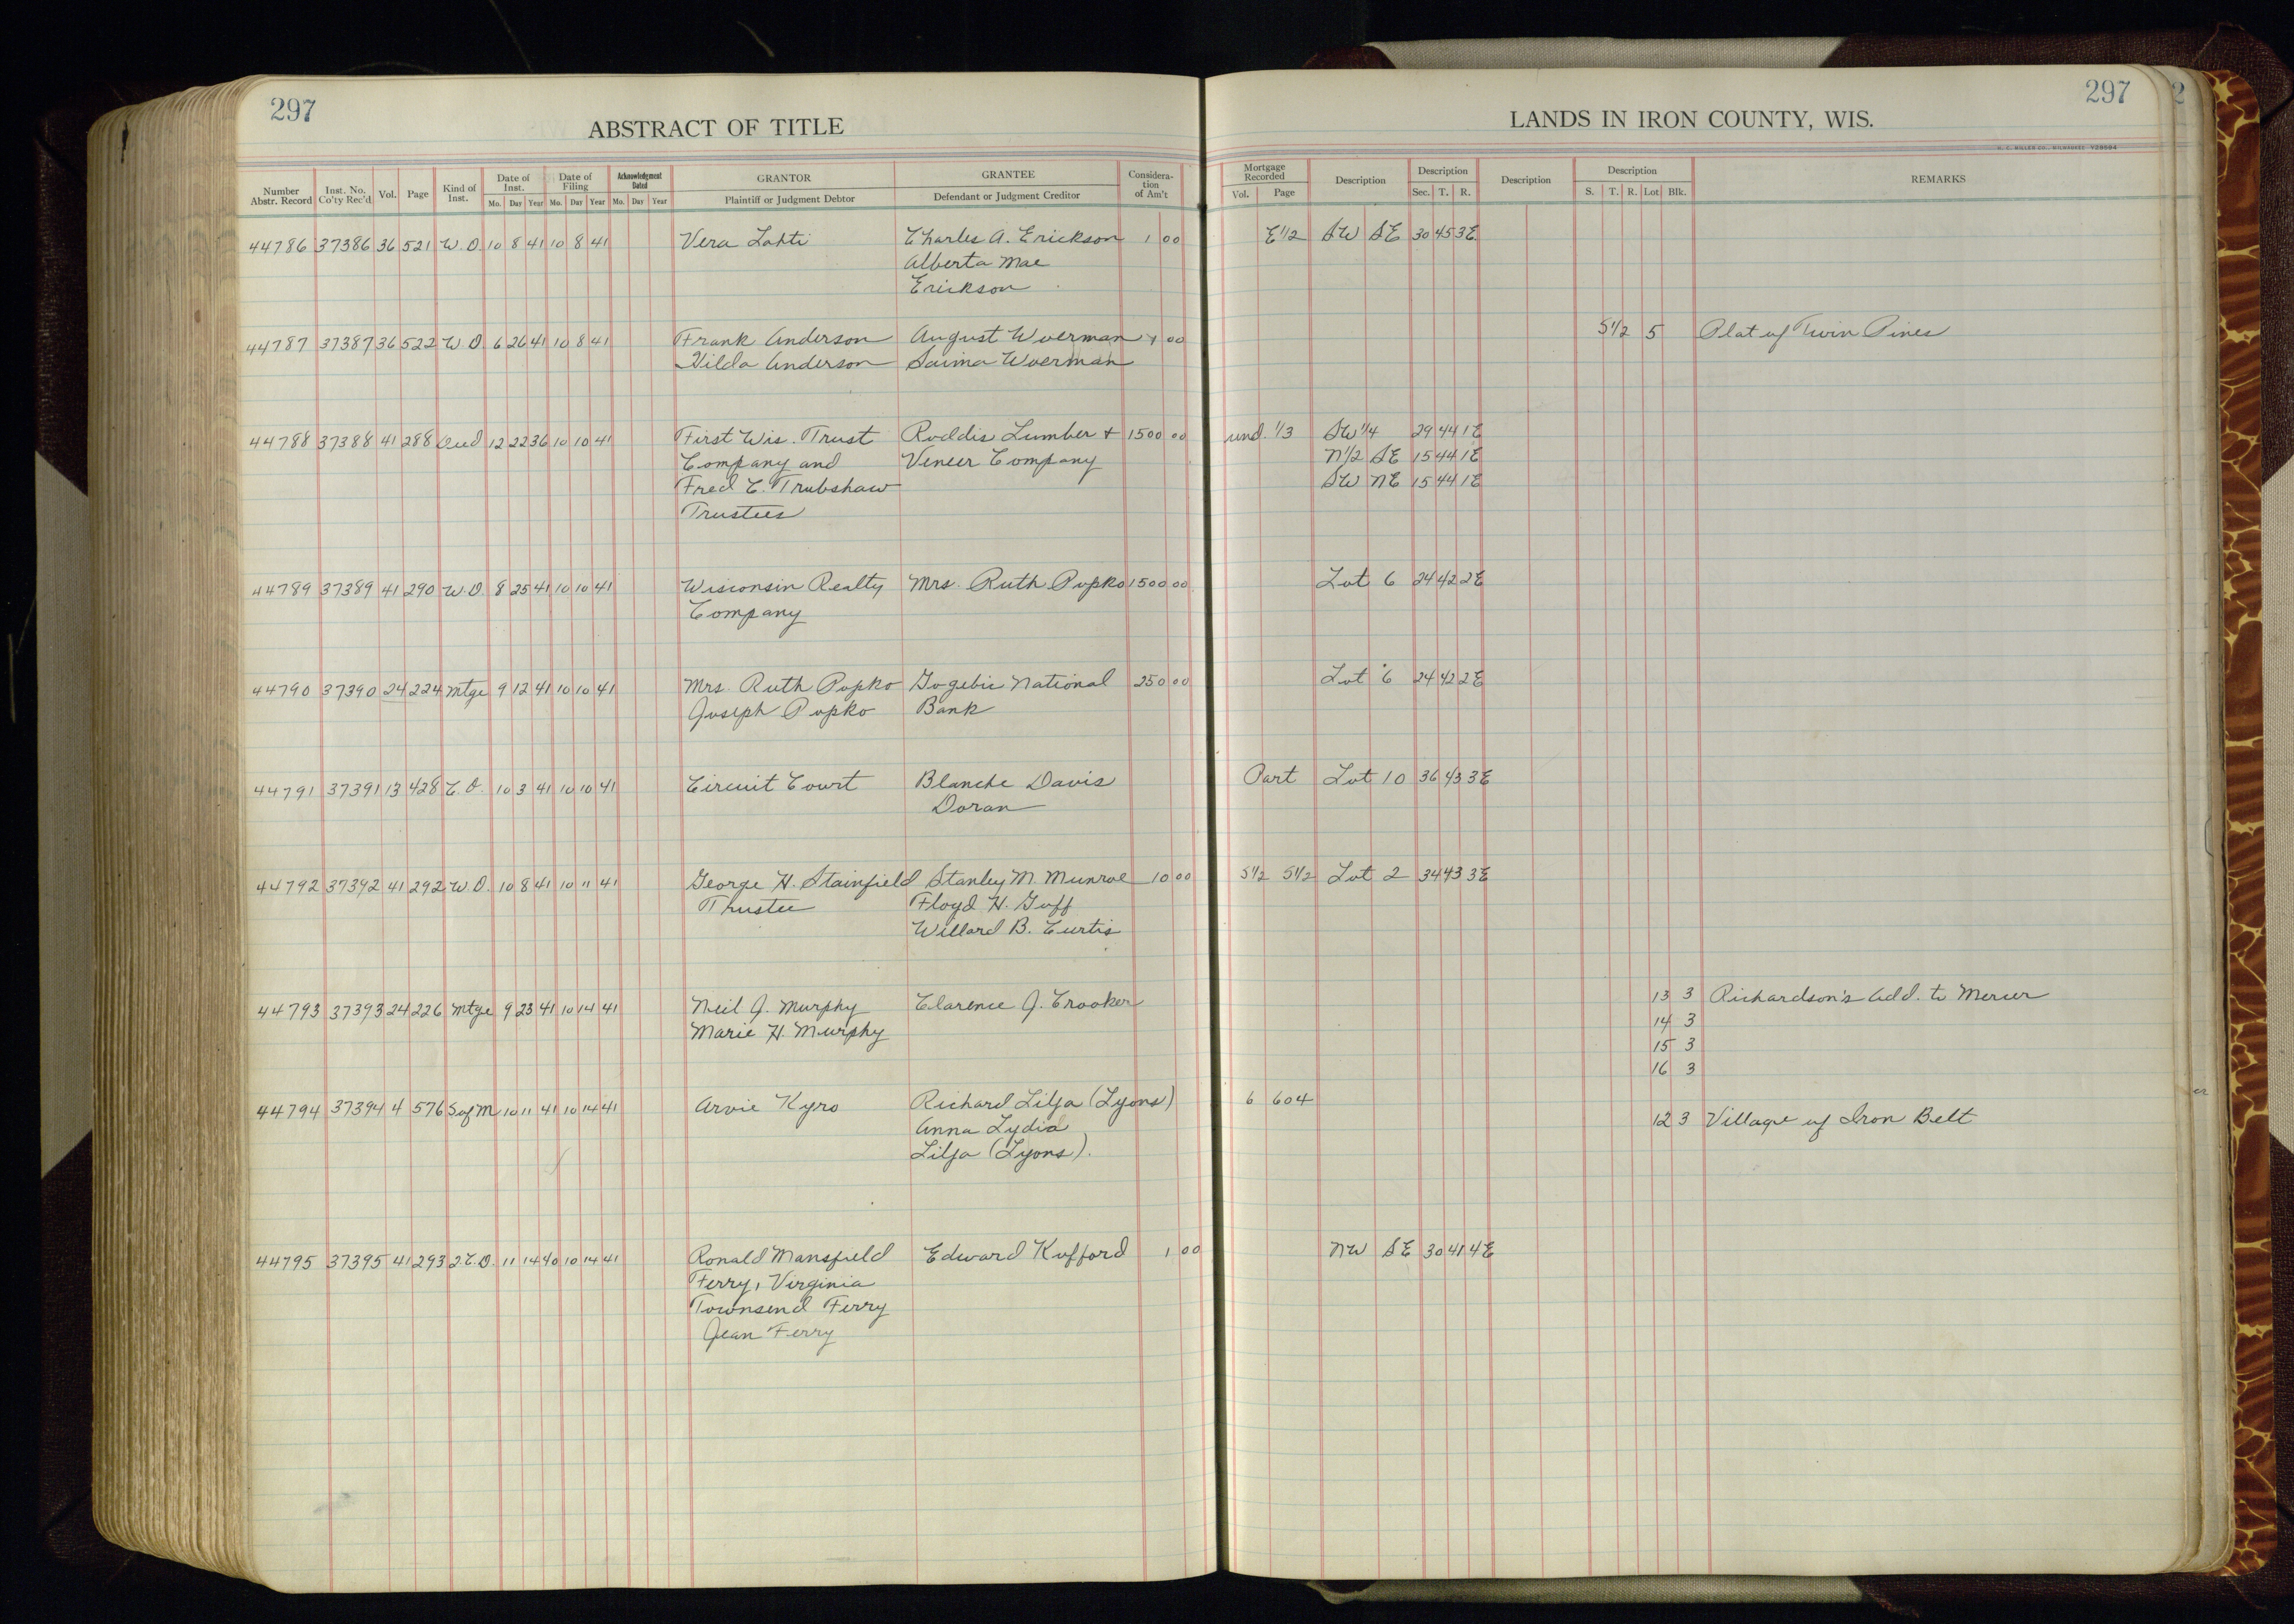 297
ABSTRACT OF TITLE
LANDS IN IRON COUNTY, WIS.
297
2
H. C. MILLER CO., MILWAUKEE
Number Abstr. Record | Inst. No. Co'ty Rec'd | Vol. | Page | Kind of Inst. | Date of Inst. Mo. Day Year | Date of Filing Mo. Day Year | Acknowledgment Dated Mo. Day Year | GRANTOR Plaintiff or Judgment Debtor | GRANTEE Defendant or Judgment Creditor | Considera-tion of Am't | Mortgage Recorded Vol. Page | Description | Description Sec. T. R. | Description | Description S. T. R. Lot Blk. | REMARKS
44786 37386 36 521 W. D. 10 8 41 10 8 41 Vera Lahti Charles A. Erickson 1 00 E 1/2 SW SE 30 45 3E
Alberta Mae
Erickson
44787 37387 36 522 W D 6 26 41 10 8 41 Frank Anderson August Woerman 1 00 S 1/2 5 Plat of Twin Pines
Hilda Anderson Saima Woerman
44788 37388 41 288 Deed 12 22 36 10 10 41 First Wis. Trust Roddis Lumber + 1500 00 und. 1/3 SW 1/4 29 44 1E
Company and Veneer Company N 1/2 SE 15 44 1E
Fred C. Trubshaw SW NE 15 44 1E
Trustees
44789 37389 41 290 W. D. 8 25 41 10 10 41 Wisconsin Realty Mrs. Ruth Popko 1500 00 Lot 6 24 42 2E
Company
44790 37390 24 224 Mtge 9 12 41 10 10 41 Mrs. Ruth Popko Gogebic National 250 00 Lot 6 24 42 2E
Joseph Popko Bank
44791 37391 13 428 C. O. 10 3 41 10 10 41 Circuit Court Blanche Davis Part Lot 10 36 43 3E
Doran
44792 37392 41 292 W. D. 10 8 41 10 11 41 George H. Stainfield Stanley M. Munroe 10 00 S 1/2 S 1/2 Lot 2 34 43 3E
Trustee Floyd H. Guff
Willard B. Curtis
44793 37393 24 226 Mtge 9 23 41 10 14 41 Neil J. Murphy Clarence J. Crooker 13 3 Richardson's Add. to Mercer
Marie H. Murphy 14 3
15 3
16 3
44794 37394 4 576 S of M 10 11 41 10 14 41 Arvie Kyro Richard Lilja (Lyons) 6 604
Anna Lydia 12 3 Village of Iron Belt
Lilja (Lyons).
44795 37395 41 293 2. C. D. 11 14 40 10 14 41 Ronald Mansfield Edward Kufford 1 00 NW SE 30 41 4E
Ferry, Virginia
Townsend Ferry
Jean Ferry